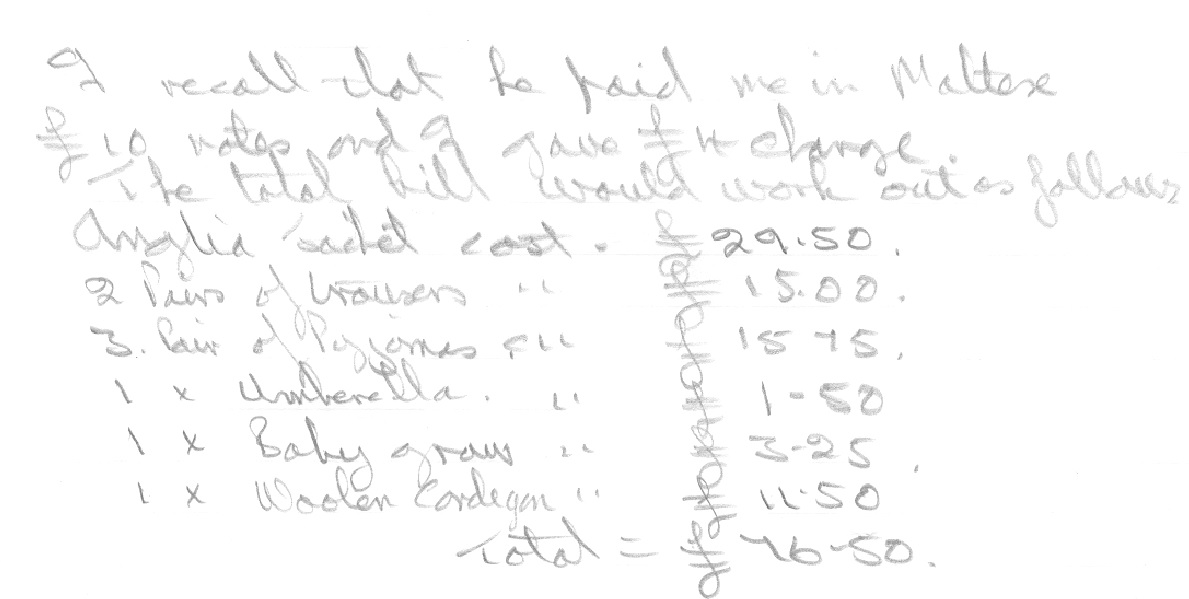 I recall that he paid me in Maltese
£10 notes and I gave £4 change.
The total bill would work out as follows
Anglia jacket cost. £ 29.50.
2 Pairs of trousers " £ 15.00.
3. Pair of Pyjamas " £ 15-75.
1 x Umberella. " £ 1-50
1 x Baby grow " £ 3-25.
1 x Woolen Cardegan " £ 11.50
Total = £ 76-50.